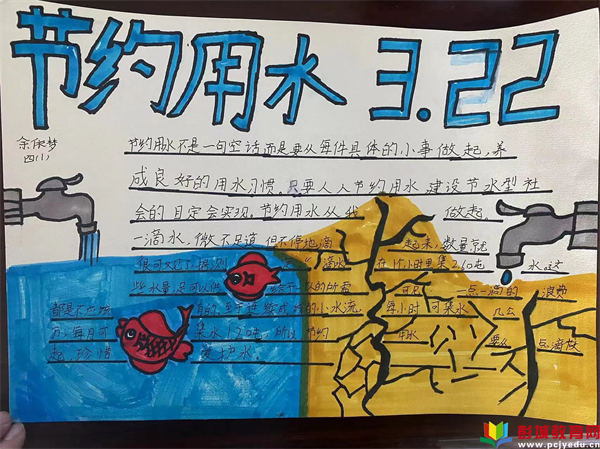 节约用水 3.22
余依梦
四(1)
节约用水不是一句空话而是要从每件具体的小事做起,养
成良好的用水习惯。只要人人节约用水 建设节水型社
会的目定会实现。节约用水从我 做起。
一滴水,微不足道 但不停地滴 起来,数量就
很可 了。据测 滴水 在1个小时里集2.60吨 水这
些水量 可以供 的所需 可见 一点一滴的 浪费
都是不应该 的。至于连续成 的小水流 每小时 可集水
每月可 集水12吨。所以 节约 用水 要从 点滴做
起,珍惜 爱护水。
彭城教育网
www.pcjyedu.cn